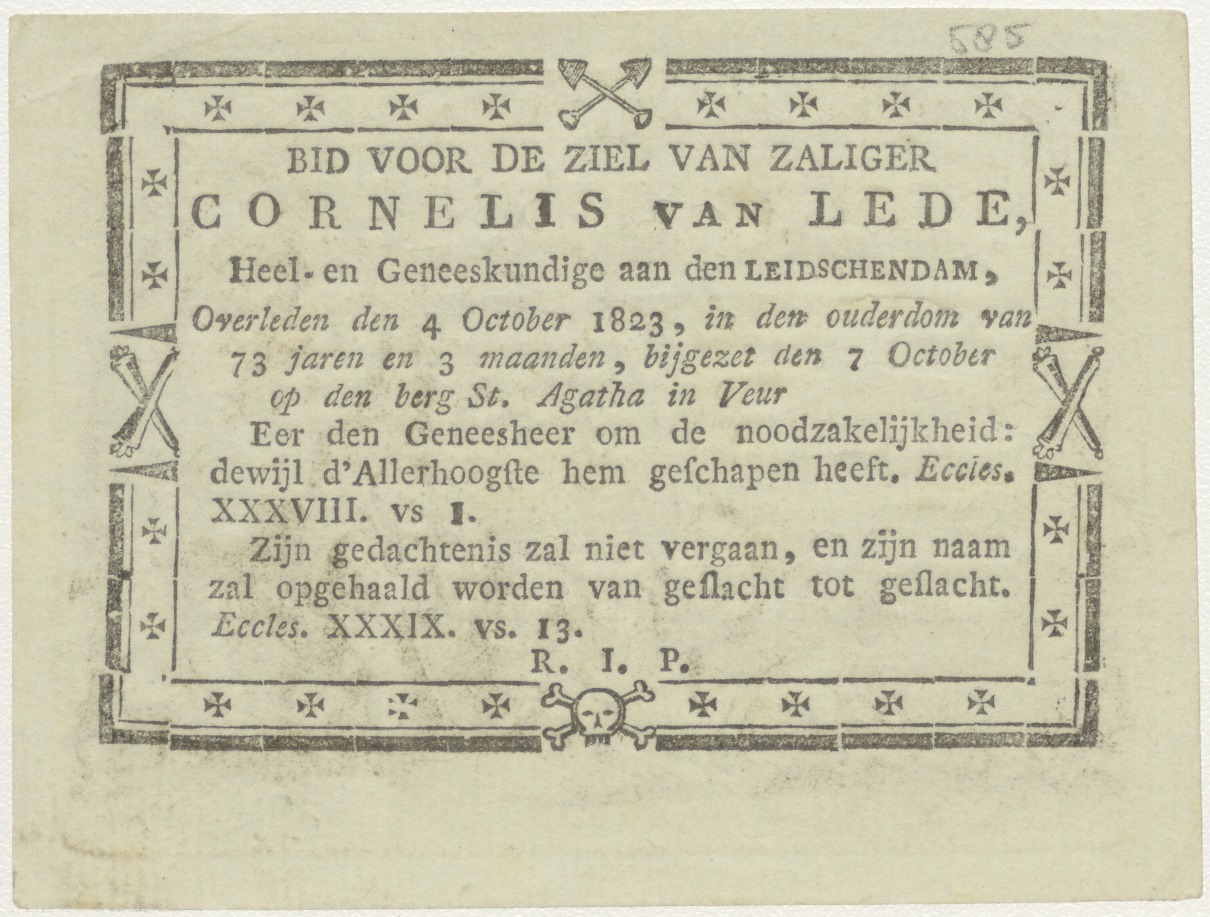 BID VOOR DE ZIEL VAN ZALIGER
CORNELIS VAN LEDE,
Heel- en Geneeskundige aan den LEIDSCHENDAM,
Overleden den 4 October 1823, in den ouderdom van
73 jaren en 3 maanden, bijgezet den 7 October
op den berg St. Agatha in Veur
Eer den Geneesheer om de noodzakelijkheid:
dewijl d'Allerhoogſte hem geſchapen heeft. Eccles.
XXXVIII. vs 1.
Zijn gedachtenis zal niet vergaan, en zijn naam
zal opgehaald worden van geſlacht tot geſlacht.
Eccles. XXXIX. vs. 13.
R. I. P.